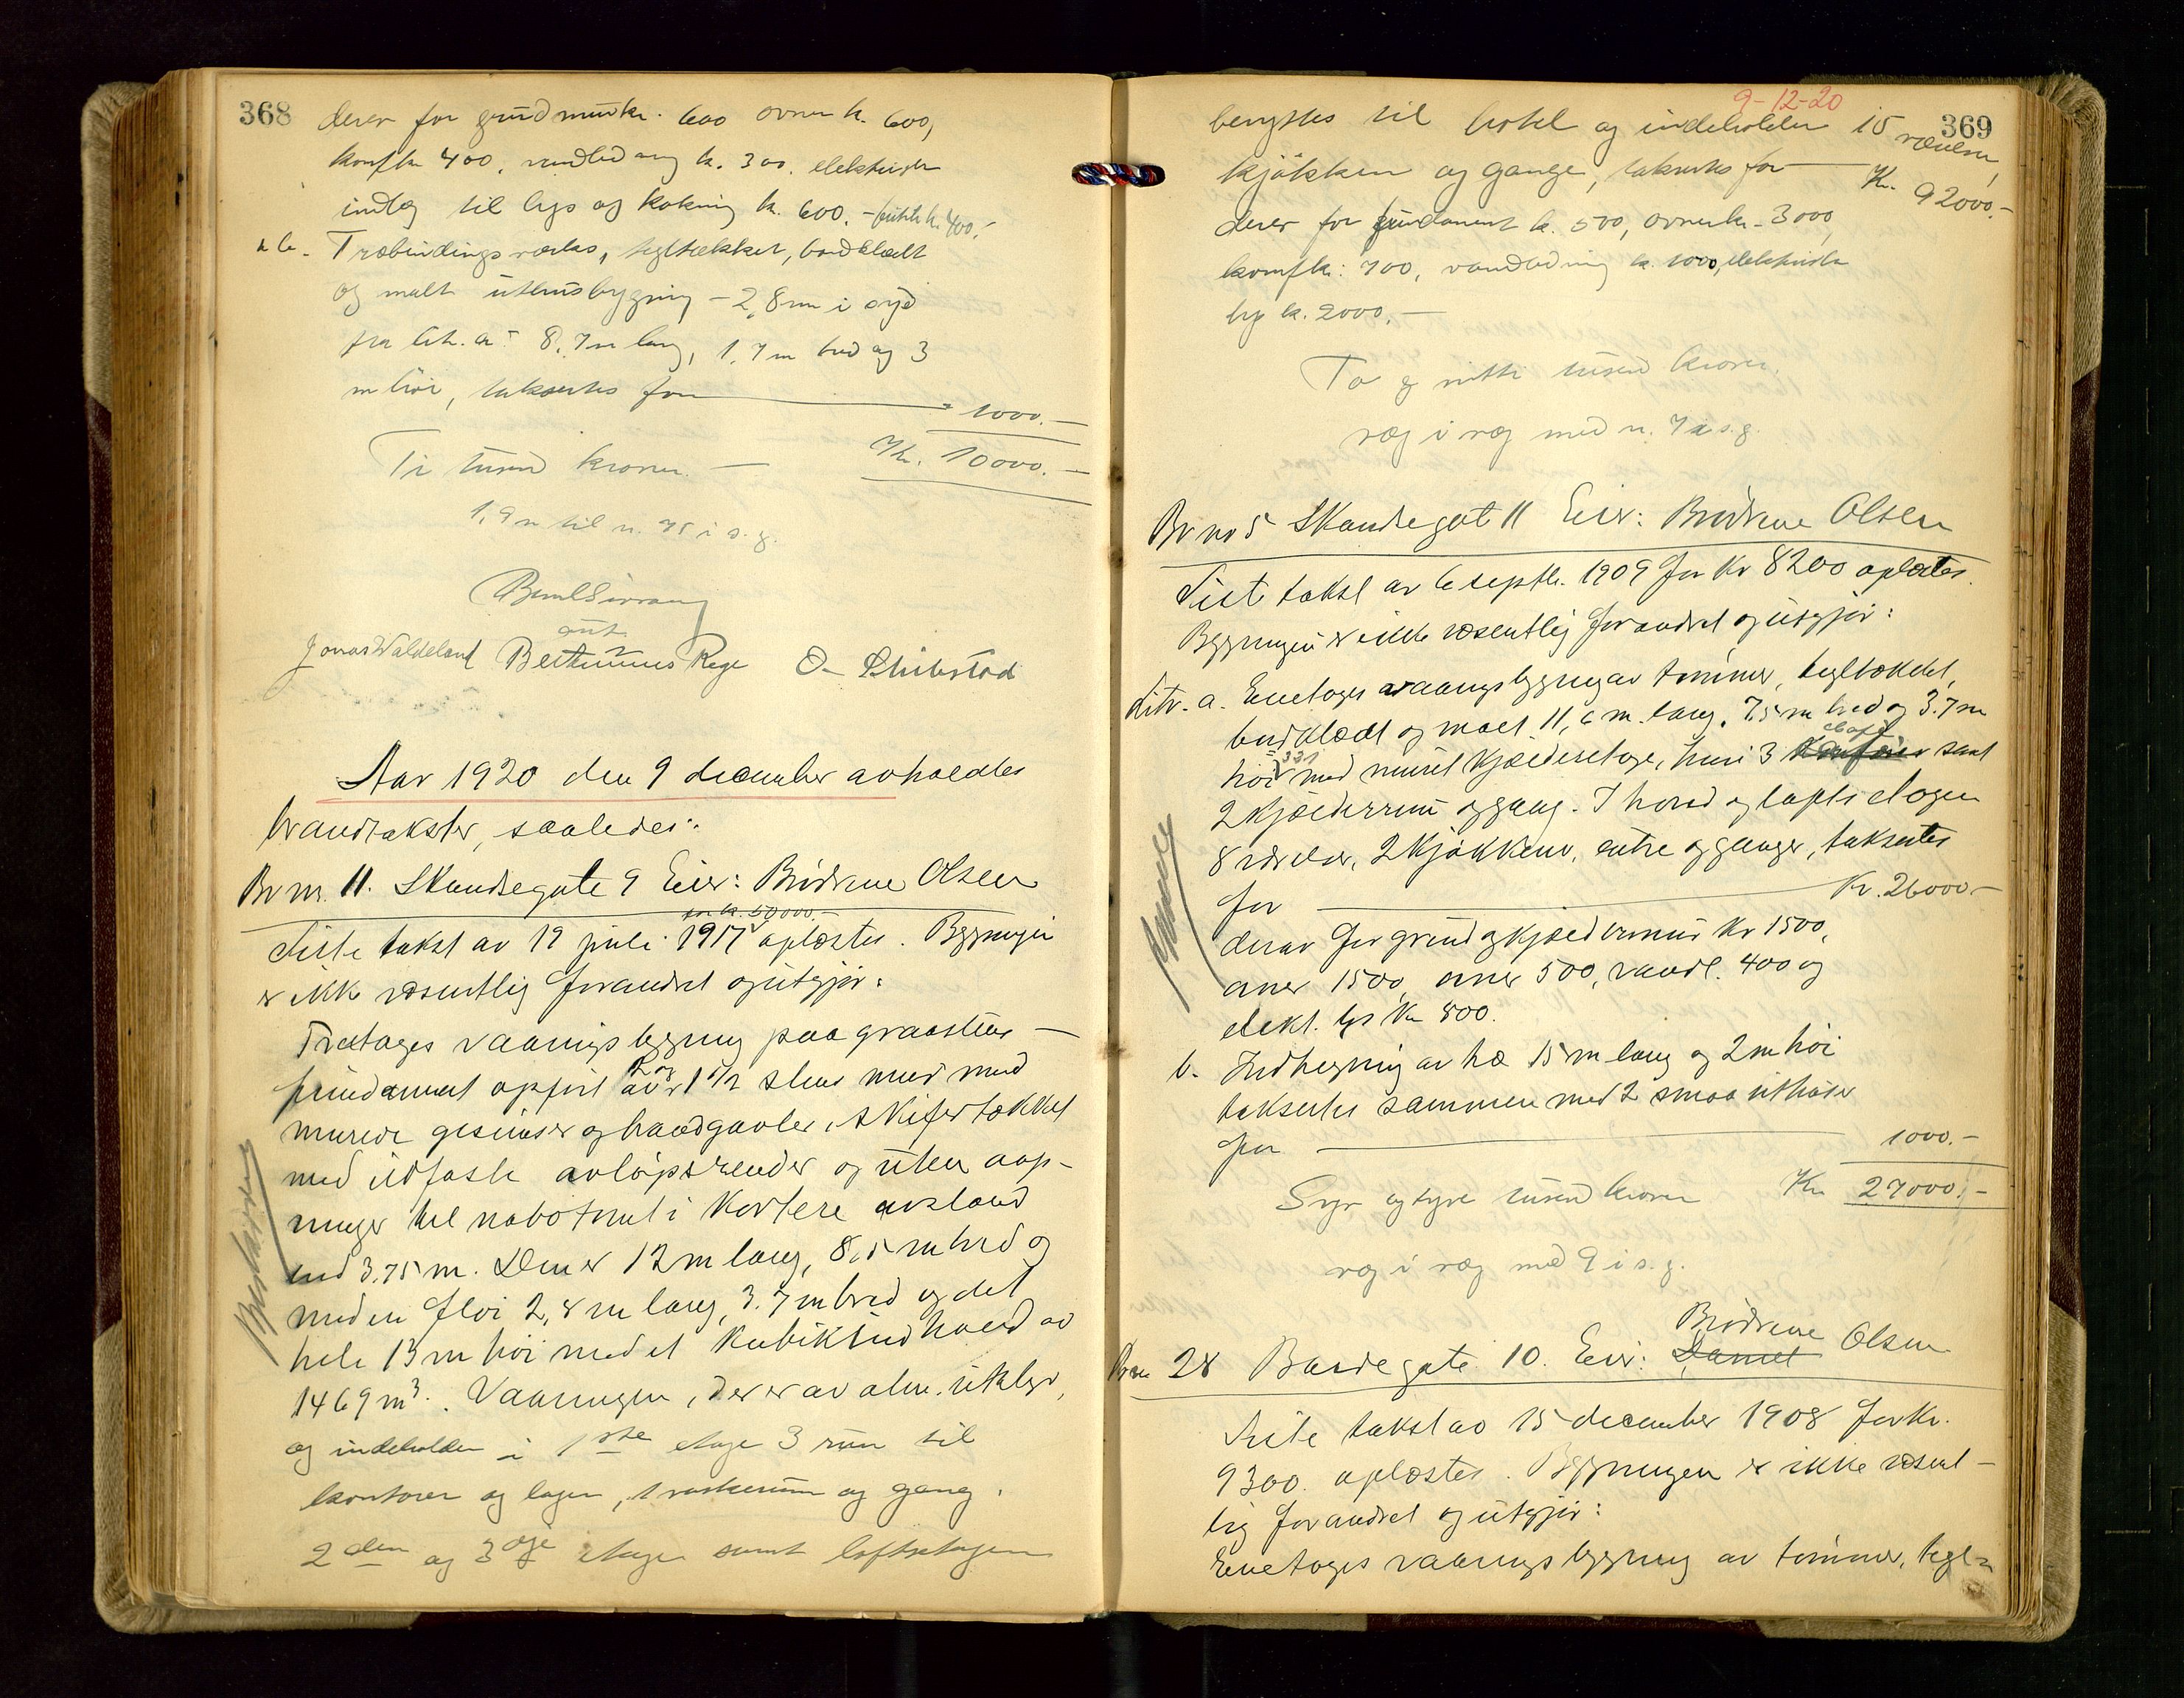 368
derav for grundmur kr. 600 ovner k. 600,
komf kr 400, vandledning k. 300. elektrisk
indlæg til lys og kokning k. 600.
Træbindingsverks, tegltækket, bordklædt
og malt uthusbygning – 2,8 m i syd
fra litr. a: 8,7 m lang, 1,7 m bred og 3
m høi, takseres for 1000.–
Ti tusend kroner. – Kr. 10000.–
1,9 m til n. 75 i s. g.
Jonas Waldeland Bertinius Rege
Aar 1920 den 9 december avholdtes
brandtakster, saaledes:
Br nr. 11. Skandsegate 9 Eier: Brødrene Olsen
for k. 50000.–
Siste takst av 19 juli 1917 oplæstes. Bygningen
er ikke væsentlig forandret og utgjør:
Treetages vaaningsbygning paa graastens –
fundament opført av 1 og 1 1/2 stens mur med
murede gesimser og brandgavler, skifertækket
med ildfaste avløpsrender og uten aap-
ninger til nabotomt i kortere avstand
end 3.75 m. Den er 12 m lang, 8,5 m bred og
med en fløi 2,8 m lang, 3.7 m bred og det
hele 13 m høi med et kubikindhold av
1469 m³. Vaaningen, der er av alm. utstyr,
og indeholder i 1ste etage 3 rum til
kontorer og lager, 1 vaskerum og gang.
2den og 3dje etage samt loftsetagen
9-12-20
369
benyttes til hotel og indeholder 15 værelser,
kjøkken og gange, takseres for Kr. 92000.–
derav for fundament k. 500, ovner kr. 3000,
komf kr: 700, vandledning k. 1000, elektrisk
lys k. 2000.–
To og nitti tusend kroner.
væg i væg med n. 7 i s. g.
Br nr 5 Skandsegat 11 Eier: Brødrene Olsen
Siste takst av 6 septbr. 1909 for Kr 8200 oplæstes.
Bygningen er ikke væsentlig forandret og utgjør:
Litr. a. Enetages vaaningsbygning av tømmer, tegltækket,
bordklædt og malt 11,6 m. lang, 7,5 m bred og 3.7 m
høi med muret kjælderetage, hvori 3 samt
2 kjælderrum og gang. I hoved og loftsetagen
8 værelser, 2 kjøkkener, entre og ganger, takseres
for Kr. 26000.–
derav for grund og kjældermur Kr 1500,
ovner 1500, 500, vandl. 400 og
elekt. lys Kr 800.
b. Indhegning av træ 15 m lang og 2 m høi
takseres sammen med 2 smaa uthuse
for 1000.–
Syv og tyve tusend kroner Kr. 27000.–
væg i væg med 9 i s. g.
Brødrene
Br nr 28 Bardegate 10. Eier: Daniel Olsen
Siste takst av 15 december 1908 for Kr.
9300. oplæstes. Bygningen er ikke væsent-
lig forandret og utgjør:
Enetages vaaningsbygning av tømmer, tegl-